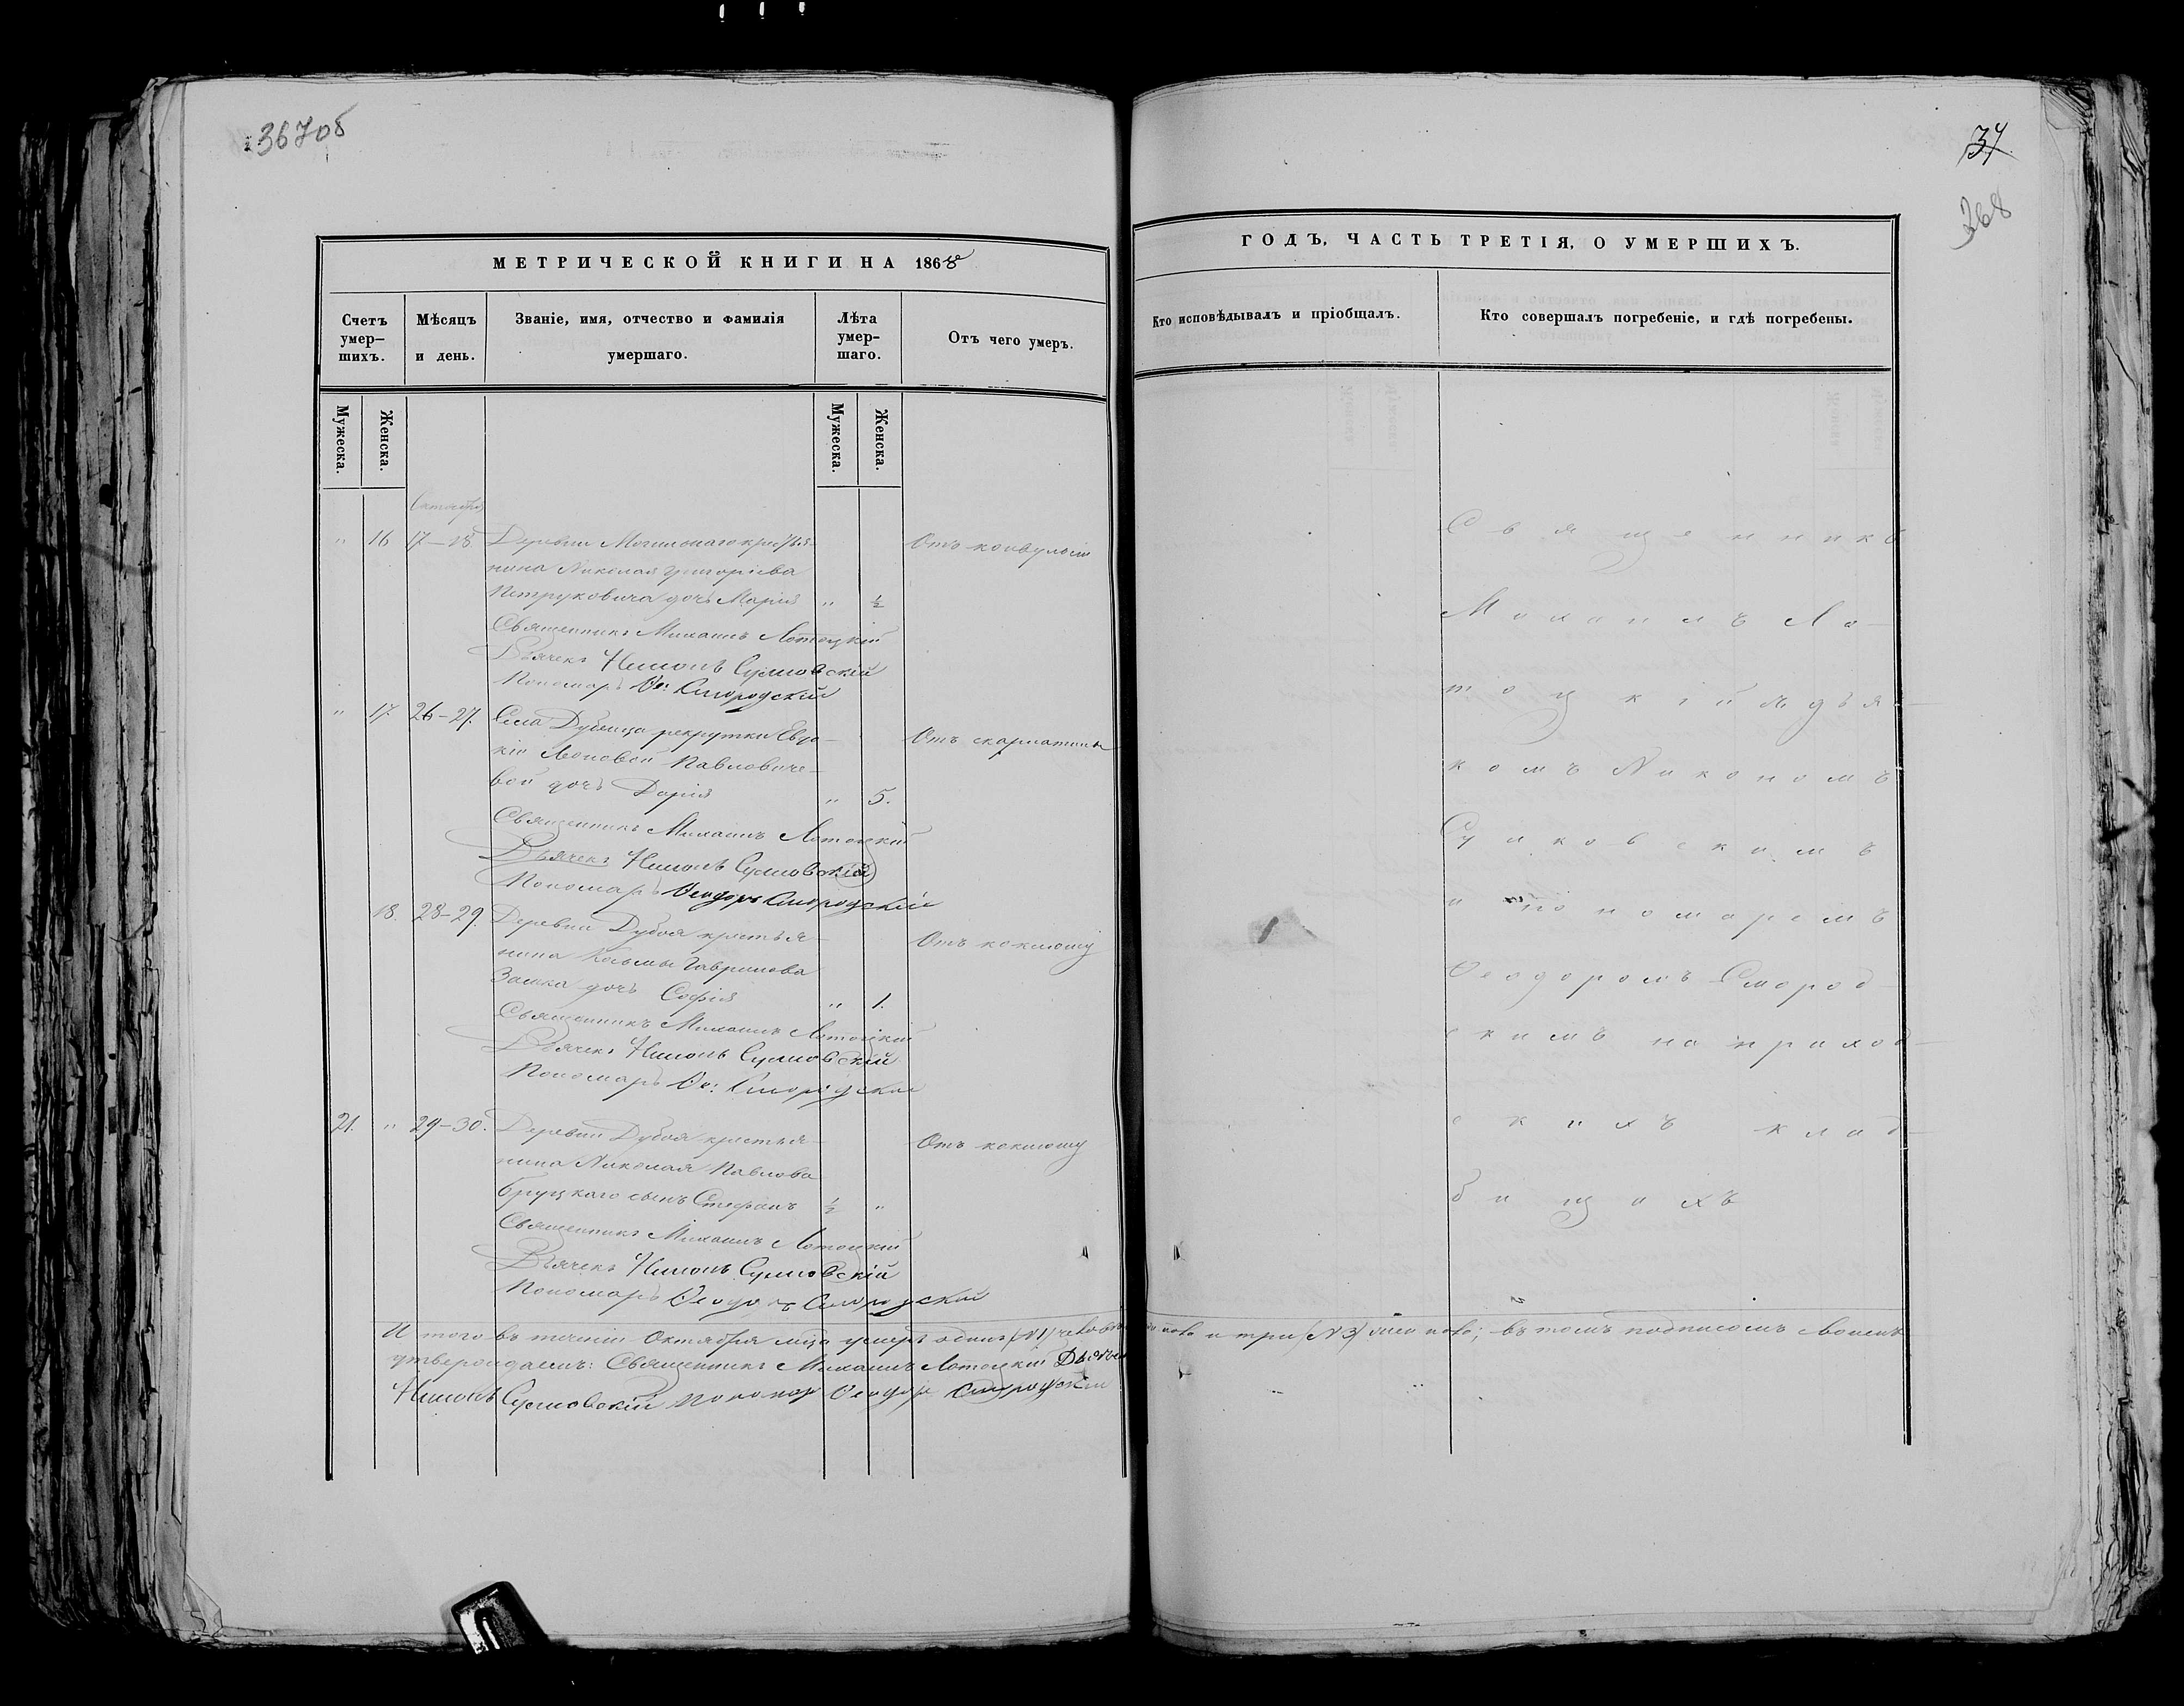 367об
МЕТРИЧЕСКОЙ КНИГИ НА 1868
Счетъ умер-шихъ.
Мѣсяцъ и день.
Званіе, имя, отчество и фамилія умершаго.
Лѣта умер-шаго.
Отъ чего умеръ.
Мужеска.
Женска.
Мужеска.
Женска.
Октября
" 16 17–18. Деревни крестья- Отъ конвульсіи
нина Николая Григоріева
Петруковича дочь Марія " ½
Священникъ Михаилъ Лотоцкій
Дьячекъ Никонъ
Пономарь Ѳе: Смородскій
" 17. 26–27. Села рекрутки Евдо- Отъ скарлатины
кіи Леоновой Павловиче-
вой дочь Дарія " 5.
Священникъ Михаилъ Лотоцкій
Дьячекъ Никонъ
Пономарь Ѳеодоръ Смородскій
18. 28–29. Деревни Дубоя крестья- Отъ коклюшу
нина Козьмы Гаврилова
дочь Софія " 1.
Священникъ Михаилъ Лотоцкій
Дьячекъ Никонъ
Пономарь Ѳе: Смородскій
21. " 29–30. Деревни Дубоя крестья- Отъ коклюшу
нина Николая Павлова
Бруцкаго сынъ Стефанъ ½ "
Священникъ Михаилъ Лотоцкій
Дьячекъ Никонъ
Пономарь Ѳеодоръ Смородскій
И того въ теченіи Октября мца умеръ одинъ (№ 1) и три (№ 3) въ томъ подписомъ своимъ
утверждаемъ: Священникъ Михаилъ Лотоцкій
Никонъ Пономарь Ѳеодоръ Смородскій
37
368
ГОДЪ, ЧАСТЬ ТРЕТІЯ, О УМЕРШИХЪ.
Кто исповѣдывалъ и пріобщалъ.
Кто совершалъ погребеніе, и гдѣ погребены.
Священникъ
Михаилъ Ло-
тоцкій дья-
комъ Никономъ
и пономаремъ
Ѳеодоромъ Смород-
скимъ на приход-
скихъ клад-
бищахъ